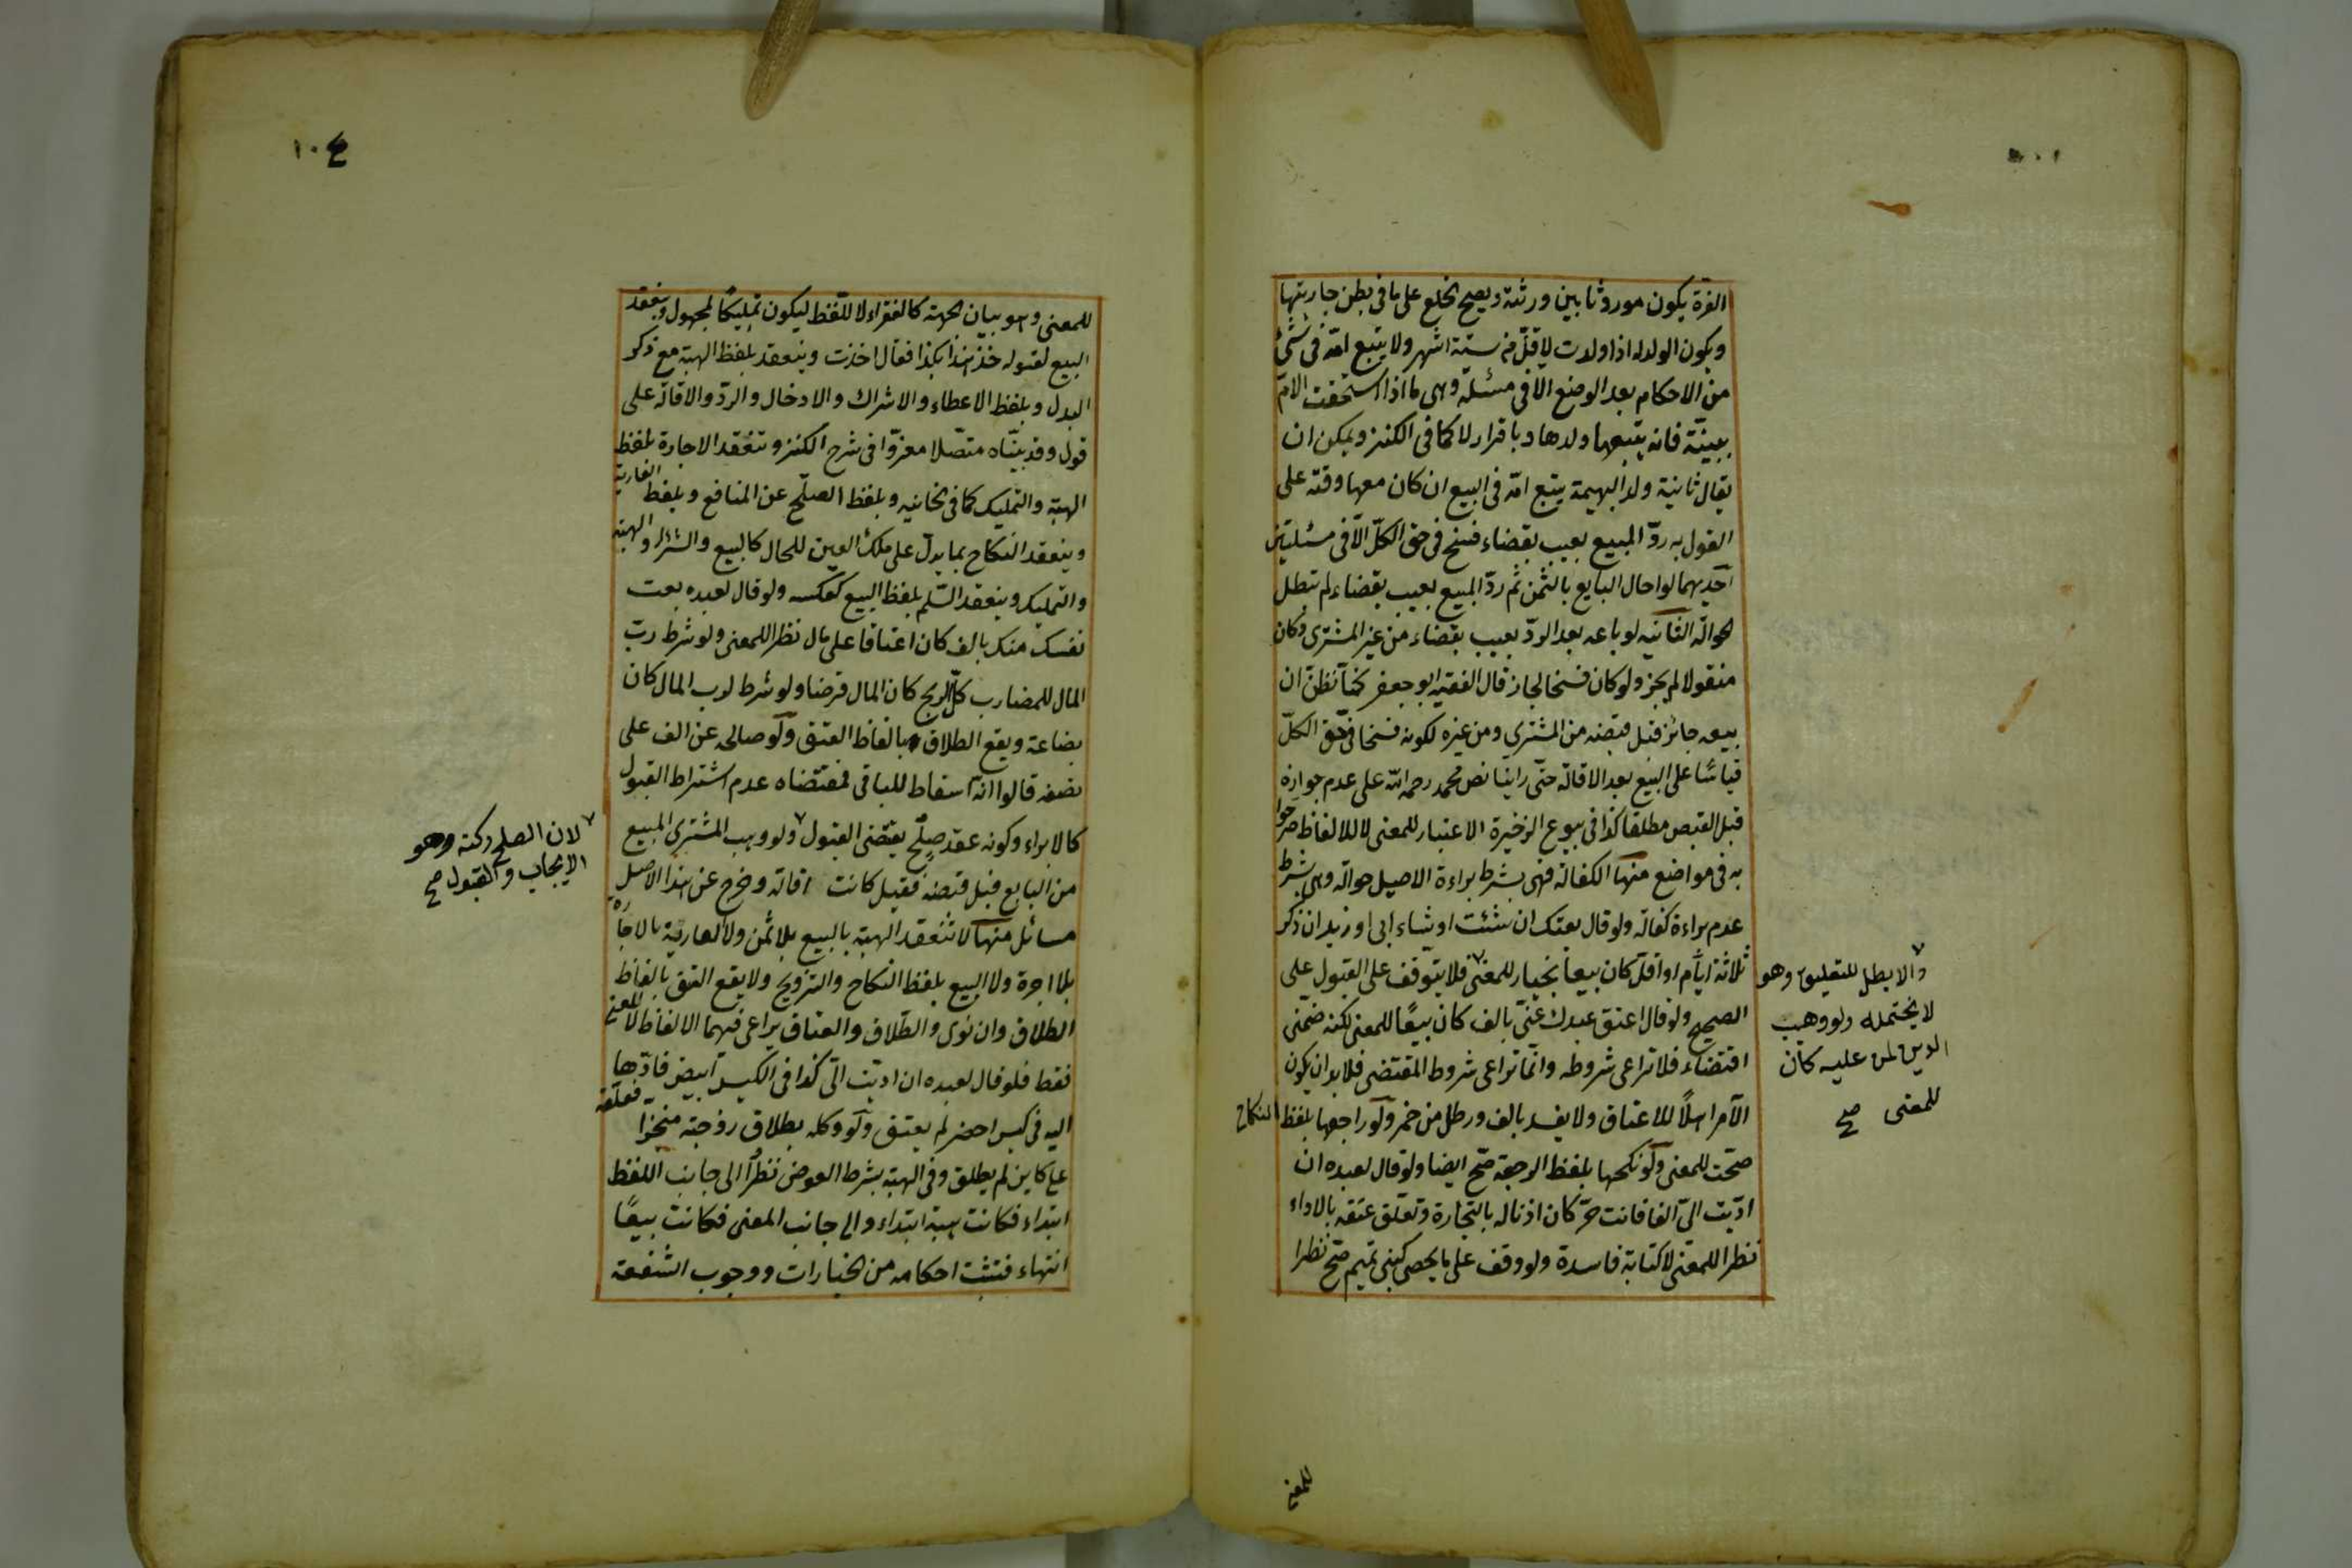 الغرة يكون موروثا بين ورثته ويصح الخلع على ما في بطن جاريتها
ويكون الولد له اذا ولدت لاقل من ستة اشهر ولا يتبع امه في شئ
من الاحكام بعد الوضع الا في مسئلة وهي ما اذا استحقت الام
ببينة فانه يتبعها ولدها وباقرار لا كما في الكنز ويمكن ان
يقال ثانية ولد البهيمة يتبع امه في البيع ان كان معها وقته على
القول به رد المبيع بعيب بقضاء فسخ في حق الكل الا في مسئلتين
احديهما لو احال البايع بالثمن ثم رد المبيع بعيب بقضاء لم تبطل
الحوالة الثانية لو باعه بعد الرد بعيب بقضاء من غير المشتري وكان
منقولا لم يجز ولو كان فسخا لجاز قال الفقيه ابو جعفر كنا نظن ان
بيعه جائز قبل قبضه من المشتري ومن غيره لكونه فسخا في حق الكل
قياسا على البيع بعد الاقالة حتى راينا نص محمد رحمه الله على عدم جوازه
قبل القبض مطلقا كذا في بيوع الذخيرة الاعتبار للمعنى لا للالفاظ صرحوا
به في مواضع منها الكفالة فهي بشرط براءة الاصيل حوالة وهي بشرط
عدم براءة كفالة ولو قال بعتك ان شئت او شاء ابي او زيد ان ذكر
ثلاثة ايام او اقل كان بيعا بخيار للمعنى فلا يتوقف على القبول على
الصحيح ولو قال اعتق عبدك عني بالف كان بيعا للمعنى لكنه ضمني
اقتضاء فلا تراعى شروطه وانما تراعى شروط المقتضي فلا بد ان يكون
الآمر اهلا للاعتاق ولا يفسد بالف ورطل من خمر ولو راجعها بلفظ النكاح
صحت للمعنى ولو نكحها بلفظ الرجعة صح ايضا ولو قال لعبده ان
اديت الي الفا فانت حر كان اذنا له بالتجارة وتعلق عتقه بالاداء
نظرا للمعنى لا كتابة فاسدة ولو وقف على ما يحصى كبني تميم صح نظرا
والا بطل للتعليق وهو
لا يحتمله ولو وهب
الدين لمن عليه كان
للمعنى صح
للمعنى
١٠٤
للمعنى وهو بيان الجهة كالفقراء لا للفظ ليكون تمليكا لمجهول وينعقد
البيع لقوله خذ هذا بكذا فقال اخذت وينعقد بلفظ الهبة مع ذكر
البدل وبلفظ الاعطاء والاشراك والادخال والرد والاقالة على
قول وقد بيناه متصلا معزوا في شرح الكنز وتنعقد الاجارة بلفظ
الهبة والتمليك كما في الخانيه وبلفظ الصلح عن المنافع وبلفظ العارية
وينعقد النكاح بما يدل على ملك العين للحال كالبيع والشراء والهبة
والتمليك وينعقد السلم بلفظ البيع كعكسه ولو قال لعبده بعت
نفسك منك بالف كان اعتاقا على مال نظرا للمعنى ولو شرط رب
المال للمضارب كل الربح كان المال قرضا ولو شرط لرب المال كان
بضاعة ويقع الطلاق بالفاظ العتق ولو صالحه عن الف على
نصفه قالوا انه اسقاط للباقي فمقتضاه عدم اشتراط القبول
كالابراء وكونه عقد صلح يقتضي القبول ولو وهب المشتري المبيع
من البايع قبل قبضه فقيل كانت اقالة وخرج عن هذا الاصل
مسائل منها لا تنعقد الهبة بالبيع بلا ثمن ولا العارية بالاجارة
بلا اجرة ولا البيع بلفظ النكاح والتزويج ولا يقع العتق بالفاظ
الطلاق وان نوى والطلاق والعتاق يراعى فيهما الالفاظ لا المعنى
فقط فلو قال لعبده ان اديت الي كذا في الكيس ابيض فادها
اليه في كيس احمر لم يعتق ولو وكله بطلاق زوجته منجزا فعلقه
على كاين لم يطلق وفي الهبة بشرط العوض نظرا الى جانب اللفظ
ابتداء فكانت هبة ابتداء والى جانب المعنى فكانت بيعا
انتهاء فتثبت احكامه من الخيارات ووجوب الشفعة
لان الصلح ركنه وهو
الايجاب والقبول صح